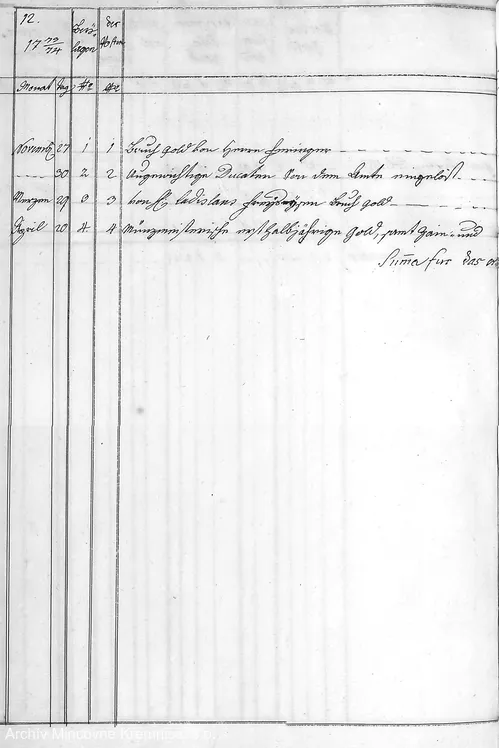 12.
17 73/74
Beÿ-
lagen
der
Posten
Monat Tag No No
Novemb 27 1 1 Bruch Gold von Herrn Heringer
30 2 2 Ungewichtige Ducaten bei dem Amte eingelöst
Merzen 29 3 3 von H Ladislaus Bruch Gold
April 20 4 4 Münzmeisterische erst halbjährige Gold, samt Gain- und
Summa für das
Archiv Mincovne Kremnica